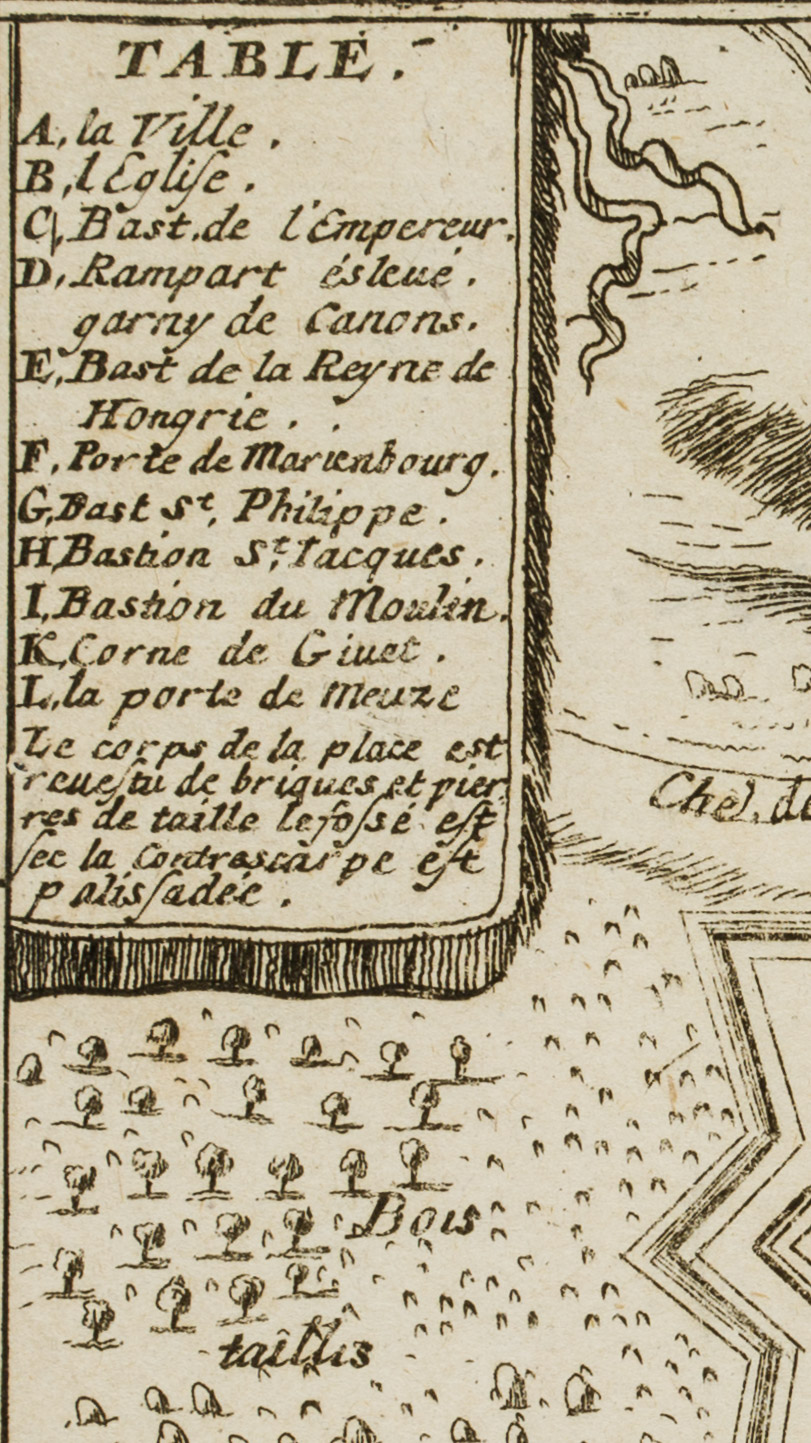 TABLE.
A, la Ville.
B, l'Egliſe.
C, Bast. de l'Empereur.
D, Rampart ésleué.
garny de Canons.
E, Bast de la Reyne de
Hongrie..
F, Porte de Marienbourg.
G, Bast St. Philippe.
H, Bastion St. Iacques.
I, Bastion du Moulin.
K, Corne de Giuet.
L, la porte de Meuze
Le corps de la place est
reueſtu de briques et pier
res de taille le foſsé eſt
ſec la Contrascarpe eſt
paliſſadée.
Che. de
Bois
taillis